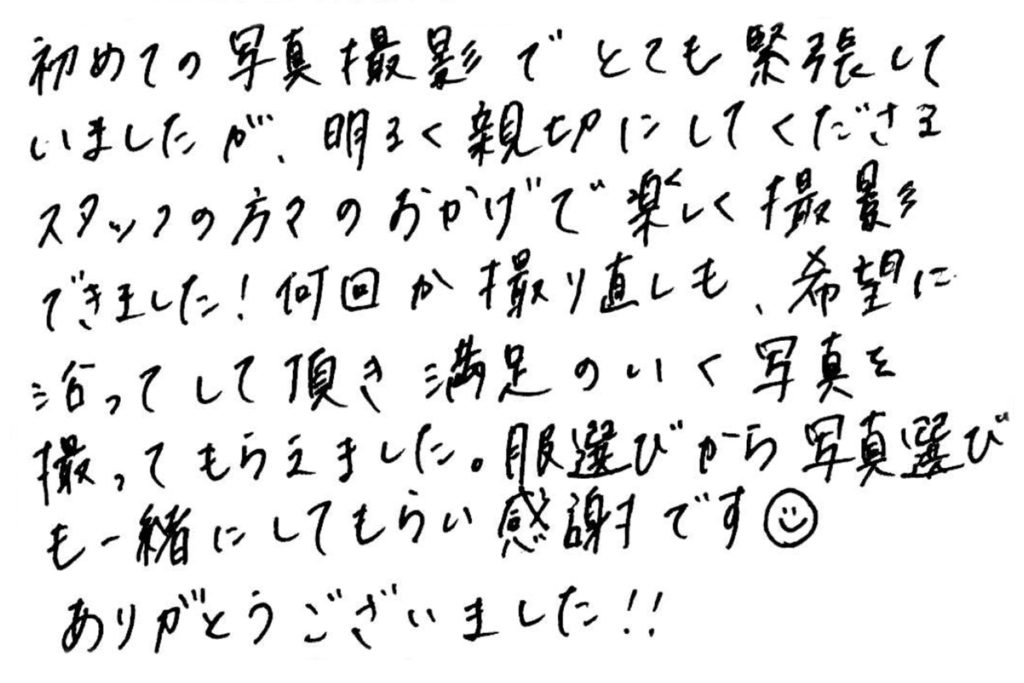 初めての写真撮影でとても緊張して
いましたが、明るく親切にしてくださる
スタッフの方々のおかげで楽しく撮影
できました！何回か撮り直しも、希望に
沿ってして頂き満足のいく写真を
撮ってもらえました。服選びから写真選び
も一緒にしてもらい感謝です☺
ありがとうございました!!